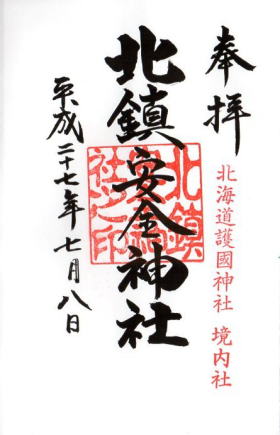 奉拝
北海道護國神社 境内社
北鎮安全神社
北鎮安全神社之印
平成二十七年七月八日